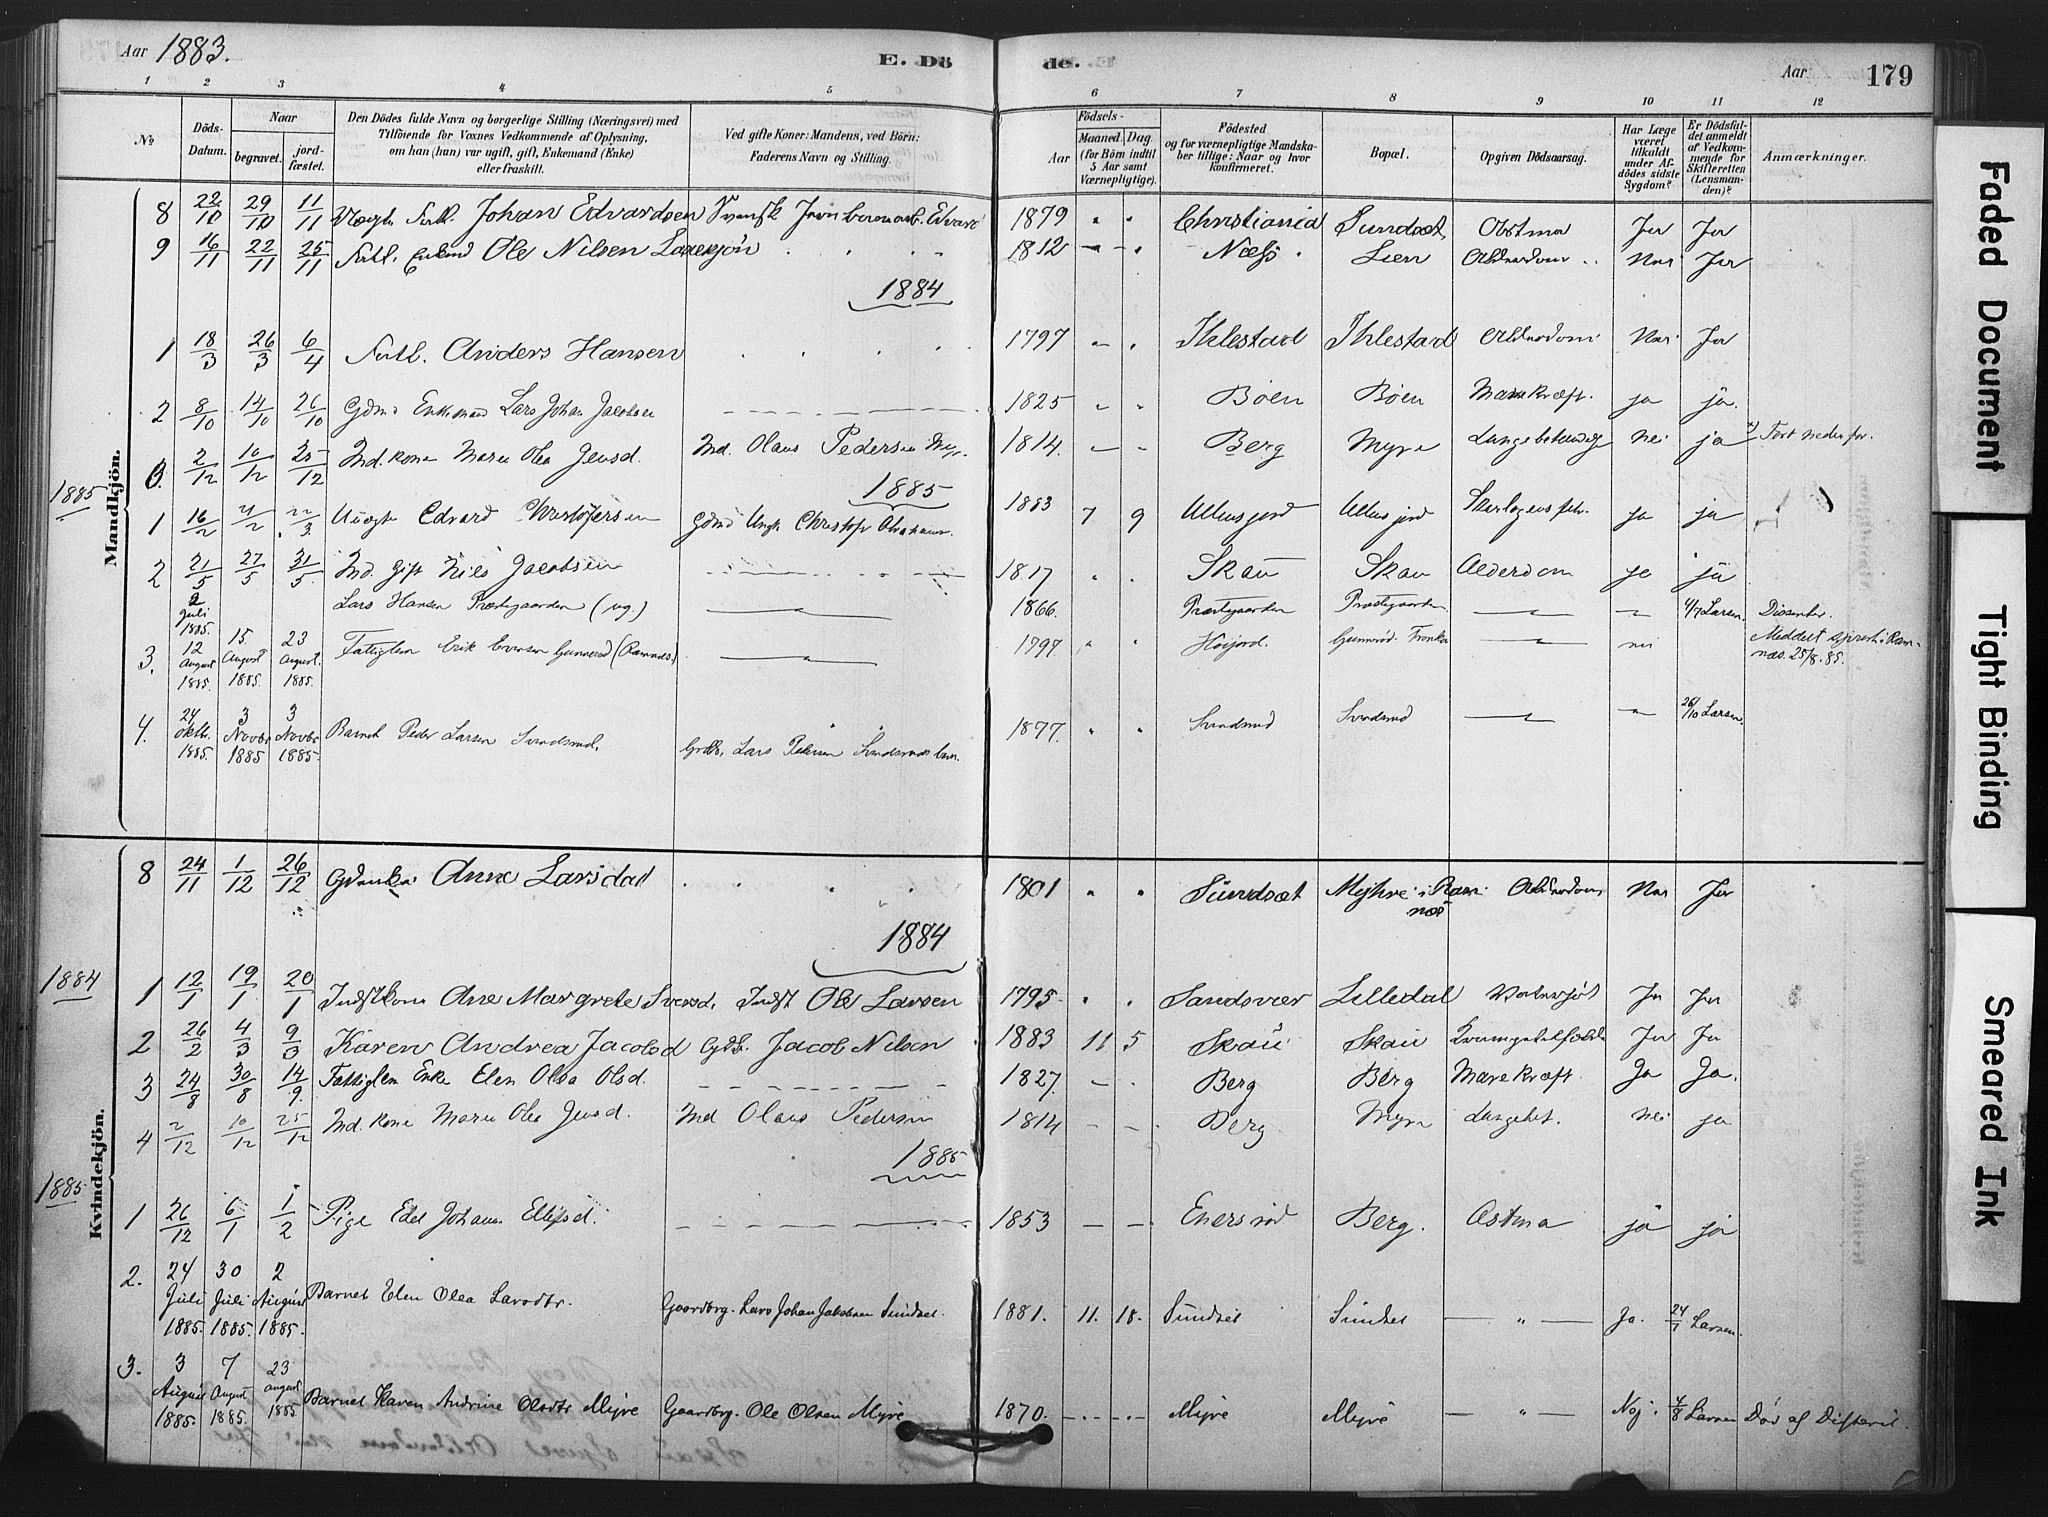 Aar 1883.
E. Dö de.
Aar 179
1 2 3 4 5 6 7 8 9 10 11 12
№ Döds-Datum. Naar begravet. jord-fæstet.
Den Dödes fulde Navn og borgerlige Stilling (Næringsvei) med
Tilföiende for Voxnes Vedkommende af Oplysning,
om han (hun) var ugift, gift, Enkemand (Enke)
eller fraskilt.
Ved gifte Koner: Mandens, ved Börn:
Faderens Navn og Stilling.
Födsels-
Aar Maaned. Dag.
(for Börn indtil
5 Aar samt
Værnepligtige).
Födested
og for værnepligtige Mandska-
ber tillige: Naar og hvor
konfirmeret.
Bopæl.
Opgiven Dödsaarsag.
Har Læge
været
tilkaldt
under Af-
dödes sidste
Sygdom?
Er Dödsfal-
det anmeldt
af Vedkom-
mende for
Skifteretten
(Lensman-
den)?
Anmærkninger.
Mandkjön.
8 22/10 29/10 11/11 Johan Edvardsen Svensk Edvard 1879 " " Christiania Sundset Ja Ja
9 16/11 22/11 25/11 Ole Nilsen 1812 Næss Lien Alderdom Nei Ja
1884
1 18/3 26/3 6/4 Anders Hansen 1797 Ihlestad Ihlestad Alderdom Nei Ja
2 8/10 14/10 26/10 Gdmd Enkemand Lars Johan Jacobsen 1825 " " Böen Böen Mavekræft. ja ja.
0. 2/12 10/12 25/12 Ind. kone Maren Olea Jensd. Ind. Olaus Pedersen 1814. Berg Myre nei ja Fört nedenfor.
1885
1885
1 16/2 /2 22/3. Edvard Christofersen Gdmd Christofr 1883 7 9 ja ja
2 21/5 27/5 31/5. Ind. Gift Nils Jacobsen 1817 " " Skau Skau Alderdom ja ja
2 Juli 1885. Lars Hansen Præstegaarden (ug.) 1866. Præstegaarden Præstegaarden 4/7 Larsen. Dissenter.
3. 12 August 1885. 15. August 1885. 23 August. 1885. Fattiglem Erik Gunnerød (Ramnæs) 1797 " " Høijord. nei Meddelt i Ram-
næs. 25/8. 85.
4. 24 Oktbr. 1885. 3 Novbr 1885 3 Novbr 1885. Barnet Peder Larsen Svindsrud. Lars Pedersen 1877. " " Svindsrud Svindsrud 26/10 Larsen.
Kvindekjön.
8 24/11 1/12 26/12 Anne Larsdat 1801 " " Sundsæt Mejhre i Ram-
næs Alderdom Nei Ja
1884
1884
1 12/1 19/1 20/1 Indstkone Ane Margrete Indst Ole Larsen 1795 " " Sandsvær Lilledal Ja Ja
2 26/2 4/3 9/3 Karen Andrea Jacobsd Gdbr. Jacob Nilsen 1883 11 5 Skau Skau Ja Ja
3 24/8 30/8 14/9. Fattiglem Enke Elen Olea Olsd. 1827. Berg Berg Mavekræft. Ja Ja.
4 2/12 10/12 25/12 Ind. kone Maren Olea Jensd. Ind Olaus Pedersen 1814 Berg Myre Lungebet. nei ja
1885
1885
1 26/12 6/1 1/2 Pige Edel Johanne 1853 Enersröd Berg. Astma ja ja
2. 24 Juli 1885. 30 Juli 1885. 2 August 1885. Barnet Elen Olea Larsdtr. Gaardbrg. Lars Johan Jakobsen Sundset. 1881. 11. 18. Sundset Sundset " Ja. 24/7 Larsen.
3. 3 August 1885. 7 August 1885. 23 august 1885. Barnet Karen Andrine Olsdtr Myre Gaardbrg. Ole Olsen Myre 1870. Myre Myre " Nej. 4/8 Larsen Död af Difterit.
Faded Document
Tight Binding
Smeared Ink